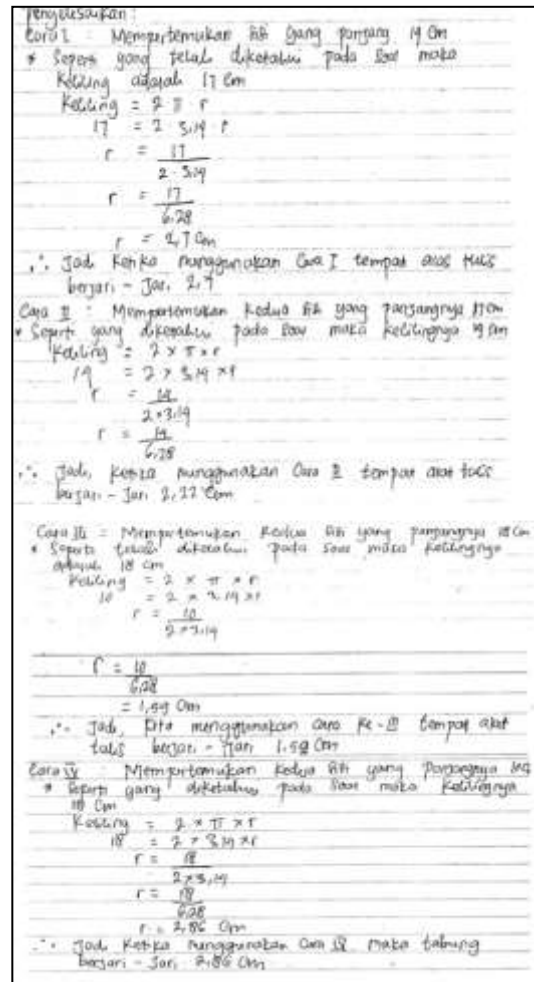 Penyelesaikan :
Cara I : Mempertemukan sisi yang panjang 14 Cm
* Seperti yang telah diketahui pada soal maka
Keliling adalah 17 Cm
Keliling = 2 π r
17 = 2 · 3,14 · r
r = 17
2 · 3,14
r = 17
6,28
r = 2,7 Cm
∴ Jadi Ketika menggunakan Cara I tempat alat tulis
berjari - Jari 2,7
Cara II : Mempertemukan Kedua sisi yang panjangnya 17 Cm
* Seperti yang diketahui pada soal maka kelilingnya 14 Cm
Keliling = 2 × π × r
14 = 2 × 3,14 × r
r = 14
2×3,14
r = 14
6,28
∴ Jadi, Ketika menggunakan Cara II tempat alat tulis
berjari - Jari 2,22 Cm
Cara III = Mempertemukan Kedua sisi yang panjangnya 18 Cm
* Seperti telah diketahui pada soal maka kelilingnya
adalah 10 Cm
Keliling = 2 × π × r
10 = 2 × 3,14 × r
r = 10
2×3,14
r = 10
6,28
= 1,59 Cm
∴ Jadi, kita menggunakan cara ke-III tempat alat
tulis berjari - Jari 1,59 Cm
Cara IV : Mempertemukan Kedua sisi yang Panjangnya
* Seperti yang diketahui pada soal maka Kelilingnya
18 Cm
Keliling = 2 × π × r
18 = 2 × 3,14 × r
r = 18
2×3,14
r = 18
6,28
r = 2,86 Cm
∴ Jadi Ketika menggunakan Cara IV maka tabung
berjari - Jari 2,86 Cm